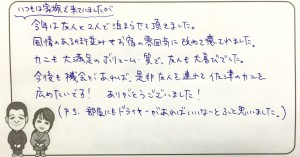 いつもは家族で来ていましたが
今年は友人と2人で泊まらせて頂きました。
風情のある佇まいとお宿の雰囲気に改めて癒されました。
カニも大満足のボリューム・質で、友人も大喜びでした。
今後も機会があれば、是非友人を連れて佐津のカニを
広めたいです！ ありがとうございました！
(P.S. 部屋にもドライヤーがあればいいな～とふと思いました。)